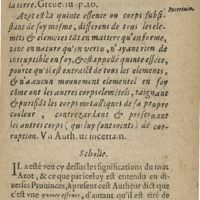 la terre. Greue. 111. p. 20.
Incertain.
Azot est la quinte essence ou corps subsi-
stant de soy mesme, different de tous les ele-
mēts & elemētés tāt en matiere qu'en forme,
tant en nature qu'en vertu, n'ayant rien de
corruptible en soy, & est appellé quinte essẽce,
pource qu'il est extraict de tous les elemens,
& n'a aucun mouuement elementel en soy
cōme ont les autres corps elemētels, taignant
& purifiāt les corps metalliques de sa propre
couleur, contregardant & preseruant
les autres corps (qui luy sont ioints) de cor-
ruption. Vn Auth. it. incertain.
Scholie.
IL a esté veu cy dessus les significations du mot
Azot, & ce que par iceluy est entendu en di-
uerses Prouinces, à present cest Autheur dict que
c'est vne quinte essence, d'autant qu'il est tiré de